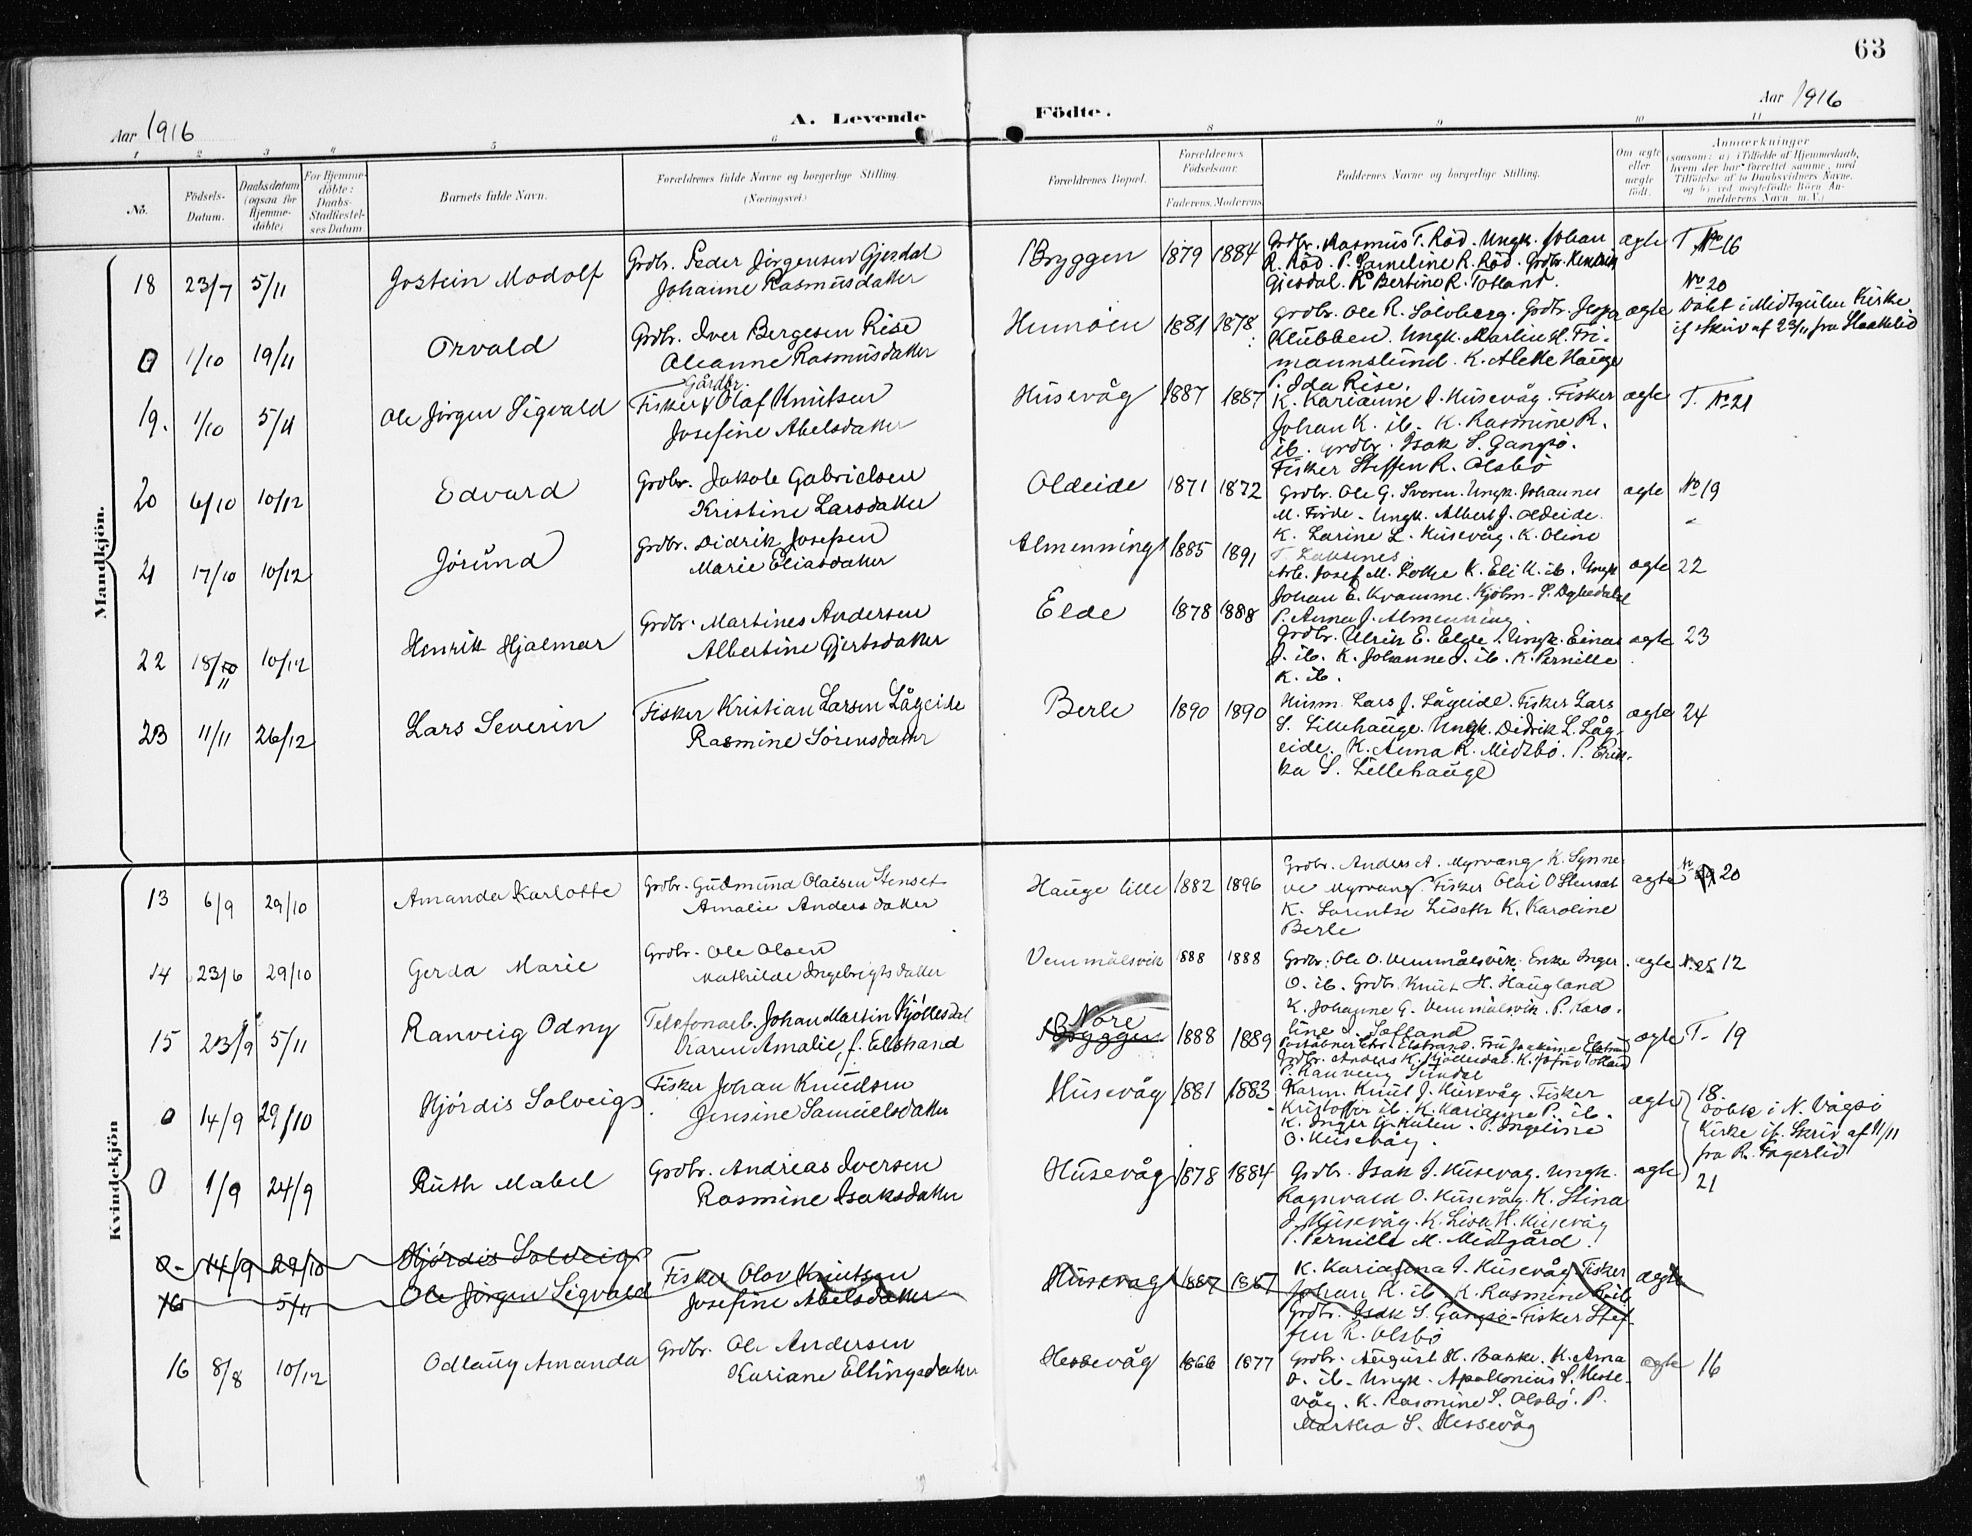 63
Aar 1916
A. Levende Födte.
Aar 1916
1 2 3 4 5 6 8 9 10 11
No.
Födsels-Datum.
Daabsdatum (ogsaa for Hjemme-döbte)
For Hjemme-döbte: Daabs-Stadfæstel-ses Datum.
Barnets fulde Navn.
Forældrenes fulde Navne og borgerlige Stilling. (Næringsvei.)
Forældrenes Bopæl.
Forældrenes Födselsaar.
Faderens. Moderens.
Faddernes Navne og borgerlige Stilling.
Om ægte eller uægte födt.
Anmærkninger
(saasom: a) i Tilfælde af Hjemmedaab,
hvem der har forrettet samme, med
Tilföielse af to Daabsvidners Navne,
og b) ved uægtefödte Börn An-
melderens Navn m. V.)
Mandkjön.
18 23/7 5/11 Jostein Modolf
Grdbr. Peder Jörgensen Gjesdal
Johanne Rasmusdatter
Bryggen 1879 1884
Grdbr. Rasmus T. Röd. Ungk. Johan
R. Röd. P. Jameline R. Röd. Grdbr. Hendrik
Gjesdal. K Bertine R. Totland.
ægte T No 16
0 1/10 19/11 Orvald
Grdbr. Iver Bergesen Rise
Oleanne Rasmusdatter
Hunnöen 1881 1878
Grdbr. Ole R. Sölvberg. Grdbr. Jespa
Klubben. Ungk. Martin H. Fri-
mannslund. K. Alette Hauge
P. Ida Rise.
ægte No 20
Döbt i Midtgulen Kirke
if skriv af 23/11 fra
19. 1/10 5/11 Ole Jörgen Sigvald
Gårdbr.
Fisker Olaf Knutsen
Josefine Abelsdatter
Husevåg 1887 1887
K. Karianne J. Husevåg. Fisker
Johan K. ib. K. Rasmine R.
ib. Grdbr. Isak S. Gangsö.
Fisker Steffen R. Olsbö
ægte T. No 21
20 6/10 10/12 Edvard
Grdbr. Jakob Gabrielsen
Kristine Larsdatter
Oldeide 1871 1872
Grdbr. Ole G. Sveren. Ungk. Johannes
M. Förde. Ungk. Albert J. Oldeide.
K. Larine L. Husevåg. K. Oline
ægte No 19
21 17/10 10/12 Jörund
Grdbr. Didrik Josefsen
Marie Eliasdatter
Almenning 1885 1891
Arb. Josef M. K. Eli K. ib. Ungk
Johan E. Kvamme. Kjöbm. S. Degnedalen
P. Anna J. Almenning.
ægte 22
22 18/10 11 10/12 Henrik Hjalmar
Grdbr. Martines Andersen
Albertine Gjertsdatter
Elde 1878 1888
Grdbr. Ulrik E. Elde. Ungk. Einar
J. ib. K. Johanne J. ib. K. Pernille
K. ib.
ægte 23
23 11/11 26/12 Lars Severin
Fisker Kristian Larsen Lågeide
Rasmine Sörensdatter
Berle 1890 1890
Husm. Lars J. Lågeide. Fisker Lars
S. Lillehauge. Ungk. Didrik L. Låg-
eide. K. Anna R. Midtbö. P. Erik-
ka S. Lillehauge
ægte 24
Kvindekjön
13 6/9 29/10 Amanda Karlotte
Grdbr. Gudmund Olaisen Stenset
Amalie Andersdatter
Hauge lille 1882 1896
Grdbr. Anders A. Myrvang K. Synne-
ve Myrvang. Fisker Olai O Stenset
K. Lorentse Liseth K. Karoline
Berle
ægte No 20
14 23/6 29/10 Gerda Marie
Grdbr. Ole Olsen
Mathilde Ingebrigtsdatter
Vemmålsvik 1888 1888
Grdbr. Ole O. Vemmålsvik. Enke Inger
O. ib. Grdbr. Knut H. Haugland
K. Johanne G. Vemmålsvik. P. Karo-
line J. Totland
ægte N. 25 12
15 23/9 5/11 Ranveig Odny
Telefonarb. Johan Martin Kjöllesdal
Karen Amalie, f. Elstrand
Nore
Bryggen 1888 1889
Postaabner Chr. Elstrand. Fru Joakime Elstrand
Grdbr. Anders K. Kjöllesdal. K. Totland
P. Ranveig Sundal
ægte T. 19
0 14/9 29/10 Hjördis Solveig
Fisker Johan Knudsen
Jensine Samuelsdatter
Husevåg 1881 1883
Karm. Knut J. Husevåg. Fisker
Kristoffer ib. K. Karianne P. ib.
K. Inger A. Kulen. P. Ingeline
O. Husevåg.
ægte 18.
Döbte i N. Vågsö
Kirke if. Skriv af 11/11
fra R. Fagerlid
0 1/9 24/9 Ruth Mabel
Grdbr. Andreas Iversen
Rasmine Isaksdatter
Husevåg 1878 1884
Grdbr. Isak J. Husevåg. Ungk.
Ragnvald O. Husevåg. K. Stina
J. Husevåg. K. Lina H. Husevåg
P. Pernille M. Midtgård.
ægte 21
0 14/9 29/10 Hjördis Solveig
16 5/11 Ole Jörgen Sigvald
Fisker Olav Knutsen
Josefine Abelsdatter
Husevåg 1887 1887
K. Karianna J. Husevåg. Fisker
Johan K. ib. K. Rasmine R. ib.
Grdbr. Isak S. Gangsö. Fisker Stef-
fen R. Olsbö
ægte
16 8/8 10/12 Odlaug Amanda
Grdbr. Ole Andersen
Kariane Ellingsdatter
Hessevåg 1866 1877
Grdbr. August H. Bakke. K. Ama
O. ib. Ungk. Apollonius S. Hesse-
våg. K. Rasmine S. Olsbö. P.
Martha S. Hessevåg
ægte 16